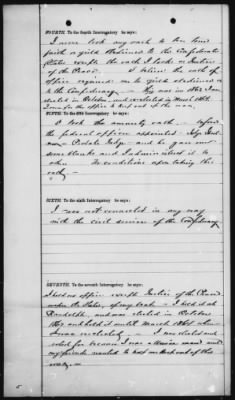 FOURTH. To the fourth Interrogatory he says:
I never took any oath to bear true
faith & yield obedience to the Confederate
States except the oath I took as Justice
of the Peace. I taken the oath of
office required me to yield obedience
to the Confederacy – This was in 1862. I was
elected in October and re-elected in March 1864.
FIFTH. To the fifth Interrogatory he says:
I took the amnesty oath – before
the federal officer appointed Judge
Probate Judge – and he gave me
some blanks and I administered it to
other. No conditions upon taking the
oath –
SIXTH. To the sixth Interrogatory he says:
I was not connected in any way
with the civil service of the Confederacy
SEVENTH. To the seventh Interrogatory he says:
I held no office except Justice of the Peace
under the States, of my beat – I held it at
Randolph, and was elected in October
and held it until March 1864 when
I was re-elected – I was elected and
voted for because I was a Union man and
my friends wanted to keep me out of